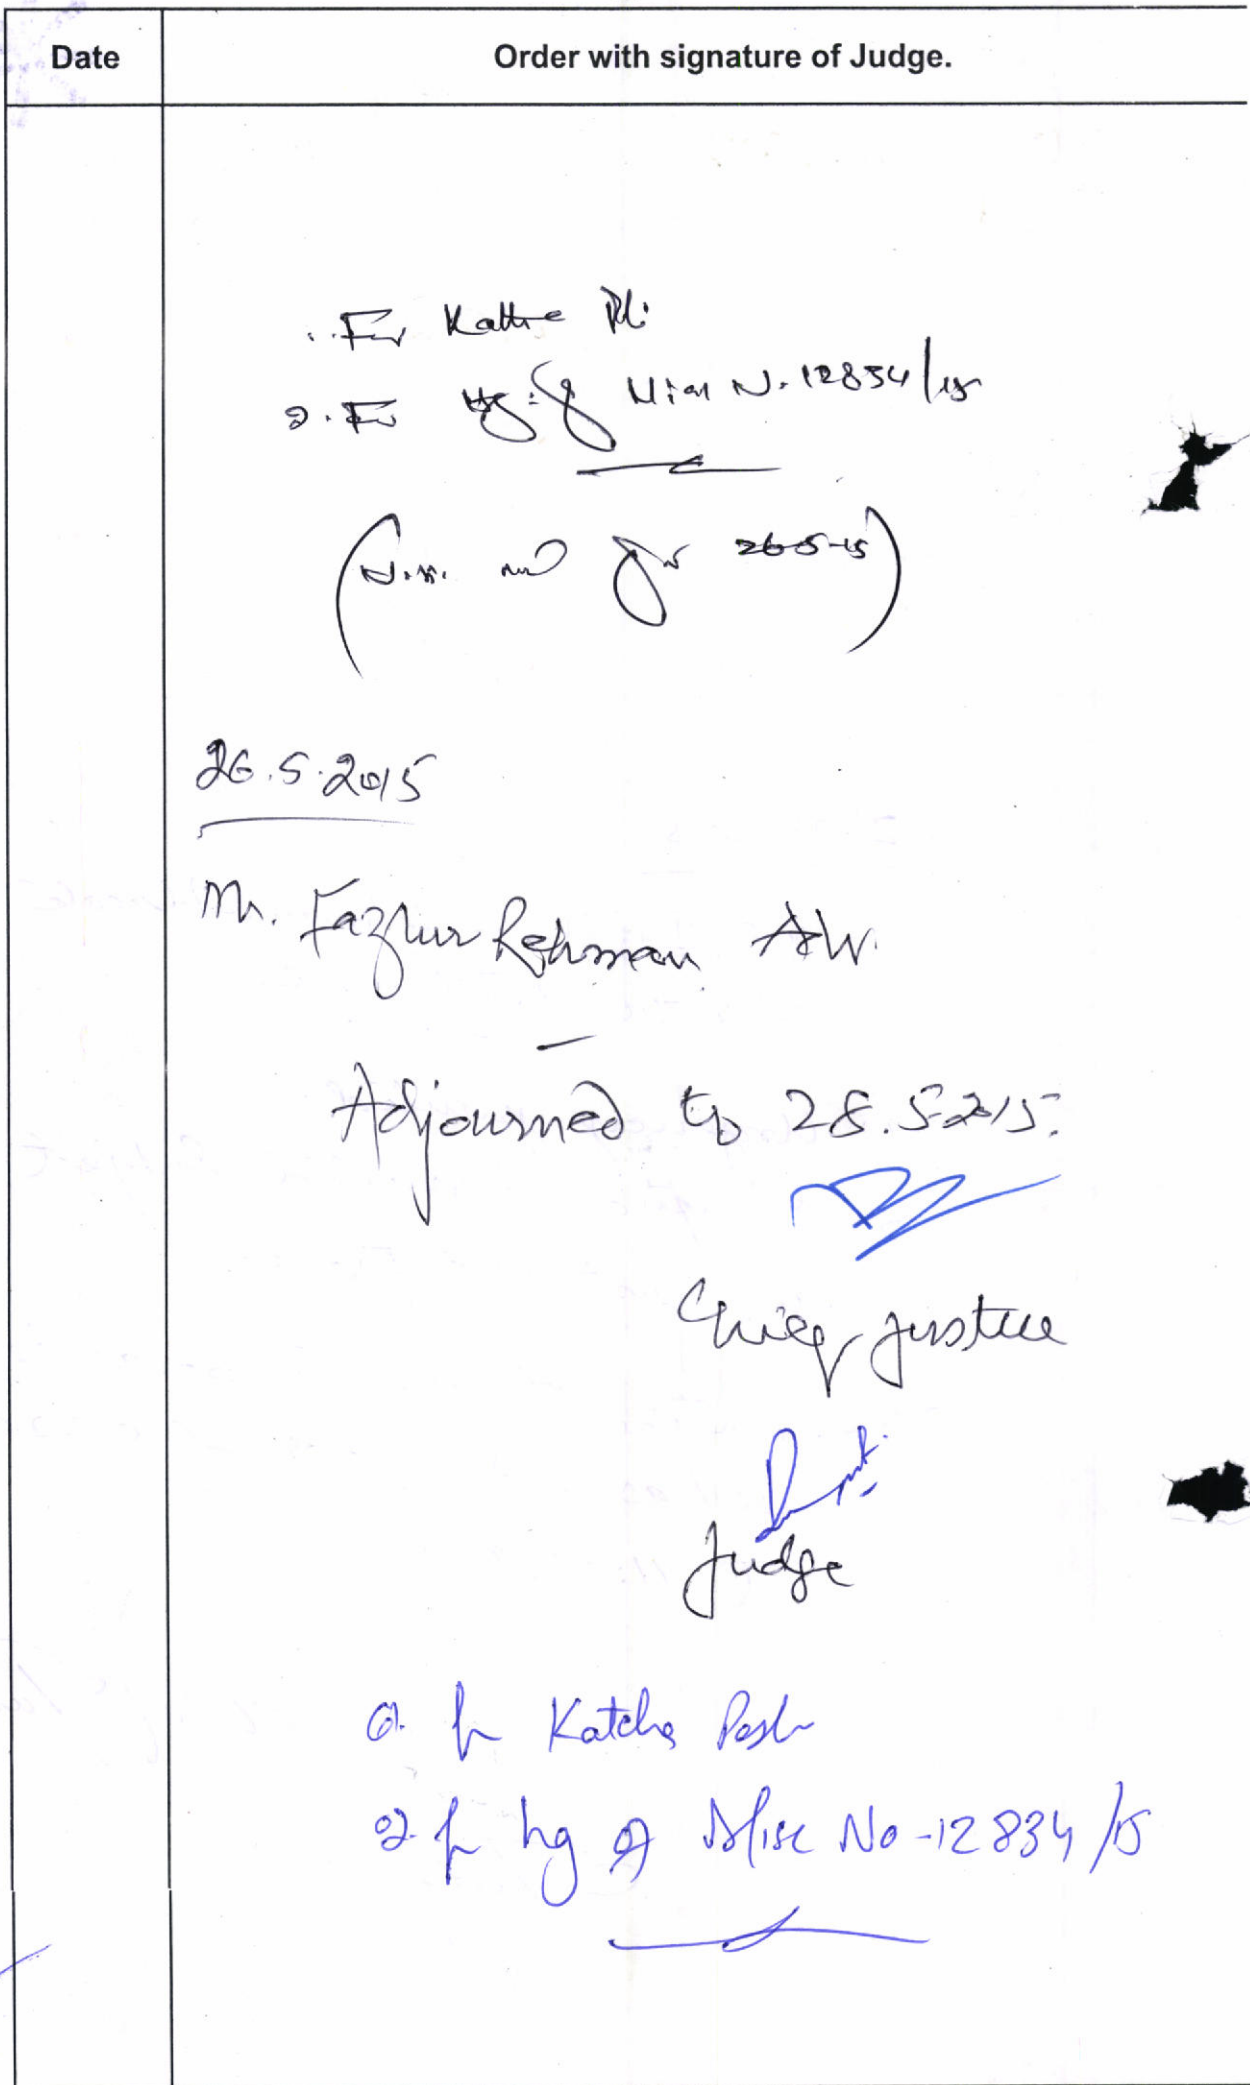 Date
Order with signature of Judge.
. For Katthe
2. For hg: of Misc N. 12834/15
( 26-5-15)
26.5.2015
Mr. Fazlur Rehman Adv.
Adjourned to 28.5.2015.
Chief Justice
Judge
Katcha Pesh
2. f hg of Misc No-12834/15